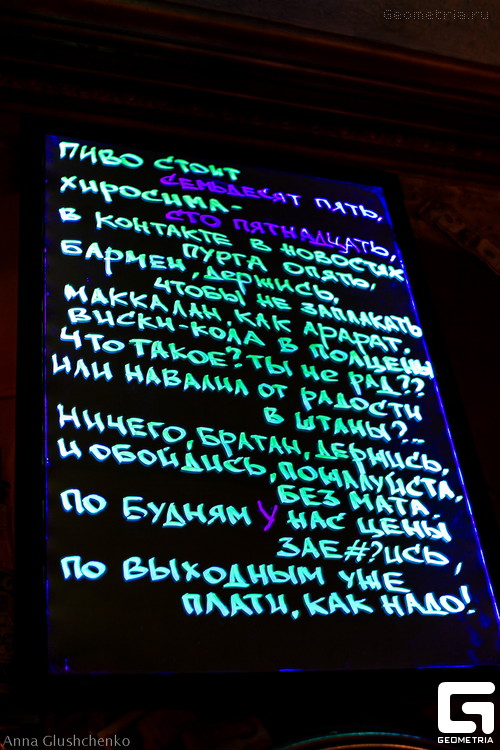 Geometria.ru
ПИВО СТОИТ
СЕМЬДЕСЯТ ПЯТЬ,
ХИРОСИМА-
СТО ПЯТНАДЦАТЬ,
В КОНТАКТЕ В НОВОСТЯХ
ПУРГА ОПЯТЬ,
БАРМЕН, ДЕРЖИСЬ,
ЧТОБЫ НЕ ЗАПЛАКАТЬ
МАККАЛАН, КАК АРАРАТ,
ВИСКИ-КОЛА В ПОЛЦЕНЫ
ЧТО ТАКОЕ? ТЫ НЕ РАД??
ИЛИ НАВАЛИЛ ОТ РАДОСТИ
В ШТАНЫ?..
НИЧЕГО, БРАТАН, ДЕРЖИСЬ,
И ОБОЙДИСЬ, ПОЖАЛУЙСТА,
БЕЗ МАТА.
ПО БУДНЯМ У НАС ЦЕНЫ
ЗАЕ#?ИСЬ,
ПО ВЫХОДНЫМ УЖЕ
ПЛАТИ, КАК НАДО!
Anna Glushchenko
GEOMETRIA